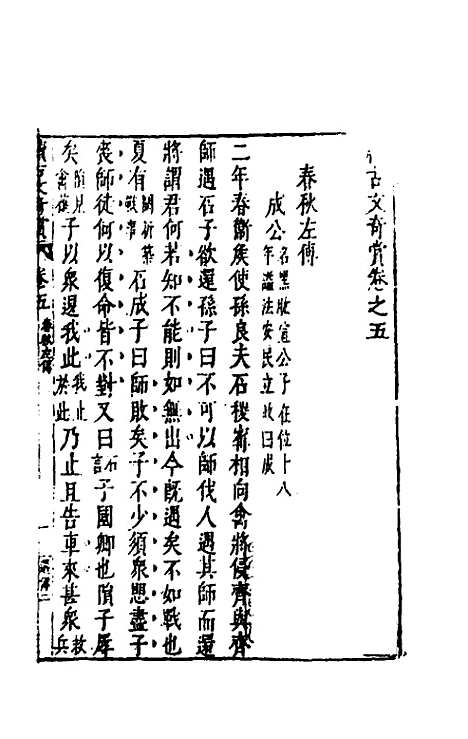 古文奇賞卷之五
春秋左傳
成公名黑肱宣公子在位十八年謚法安民立政曰成
二年春衛侯使孫良夫石稷甯相向禽將侵齊與齊
師遇石子欲還孫子曰不可以師伐人遇其師而還
將謂君何若知不能則如無出今既遇矣不如戰也
夏有闕新築戰事石成子曰師敗矣子不少須衆懼盡子
喪師徒何以復命皆不對又曰石言子國卿也隕子辱
矣隕見禽獲子以衆退我此我止於此乃止且告車來甚衆故兵
古文奇賞 卷五 春秋左傳